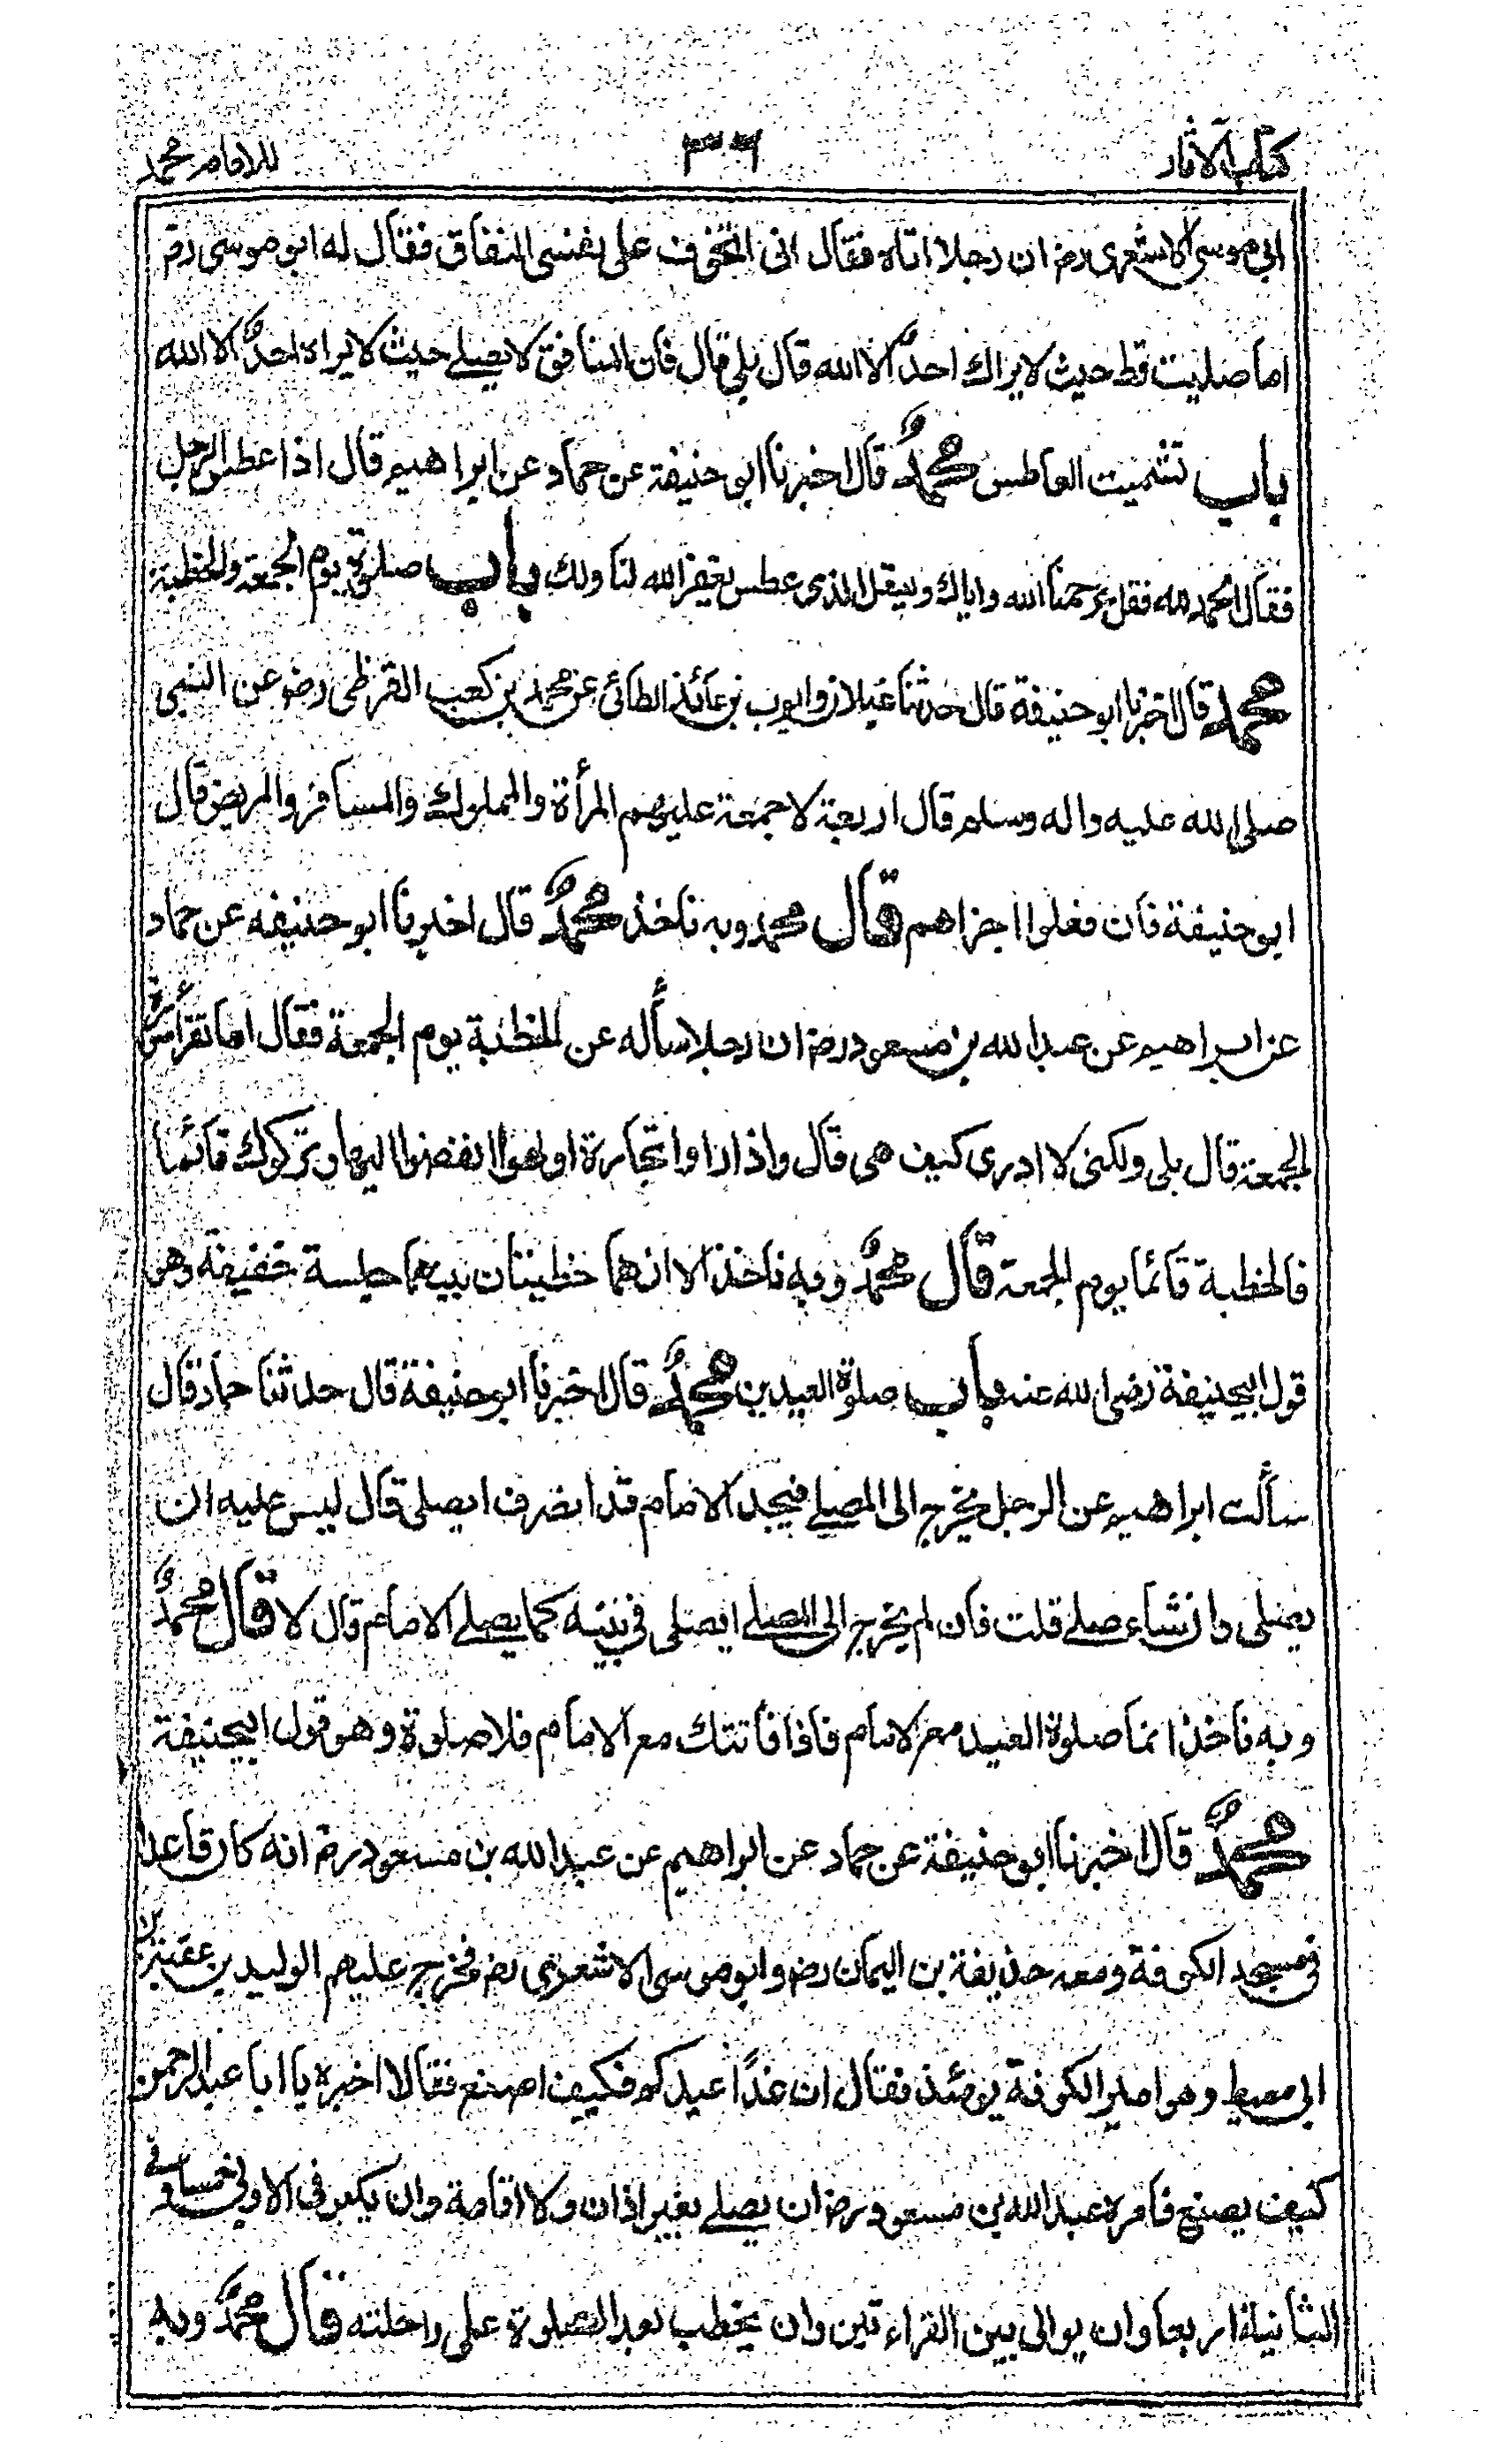 كتاب الاثار ٣٦ للامام محمد
ابى موسى الاشعرى رض ان رجلا اتاه فقال انى اتخوف على نفسى النفاق فقال له ابو موسى رض
اما صليت قط حيث لا يراك احدٌ الا الله قال بلى قال فان المنافق لا يصلے حيث لا يراه احدٌ الا الله
باب تشميت العاطس محمدٌ قال اخبرنا ابو حنيفة عن حماد عن ابراهيم قال اذا عطس الرجل
فقال الحمد لله فقل يرحمنا الله واياك وليقل الذى عطس يغفر الله لنا ولك باب صلوة يوم الجمعة والخطبة
محمد قال اخبرنا ابو حنيفة قال حدثنا غيلان وايوب بن عائذ الطائى عن محمد بن كعب القرظى رض عن النبى
صلى الله عليه واله وسلم قال اربعة لا جمعة عليهم المرأة والمملوك والمسافر والمريض قال
ابو حنيفة فان فعلوا اجزاهم قال محمد وبه ناخذ محمدٌ قال اخبرنا ابو حنيفه عن حماد
عن ابراهيم عن عبد الله بن مسعود رض ان رجلا سأله عن الخطبة يوم الجمعة فقال اما تقرأ سورة
الجمعة قال بلى ولكنى لا ادرى كيف هى قال واذا راوا تجارة او لهوا انفضوا اليها وتركوك قائما
فالخطبة قائما يوم الجمعة قال محمدٌ وبه ناخذ الا انهما خطبتان بينهما جلسة خفيفة وهو
قول ابيحنيفة رضى الله عنه باب صلوة العيدين محمدٌ قال اخبرنا ابو حنيفة قال حدثنا حماد قال
سألت ابراهيم عن الرجل يخرج الى المصلے فيجد الامام قد انصرف ايصلى قال ليس عليه ان
يصلى وان شاء صلے قلت فان لم يخرج الى المصلے ايصلى فى بيته كما يصلے الامام قال لا قال محمدٌ
وبه ناخذ انما صلوة العيد مع الامام فاذا فاتتك مع الامام فلا صلوة وهو قول ابيحنيفة
محمدٌ قال اخبرنا ابو حنيفة عن حماد عن ابراهيم عن عبد الله بن مسعود رض انه كان قاعدا
فى مسجد الكوفة ومعه حذيفة بن اليمان رض وابو موسى الاشعرى رض فخرج عليهم الوليد بن عقبة بن
ابى معيط وهو امير الكوفة يومئذ فقال ان غدًا عيدكم فكيف اصنع فقالا اخبره يا ابا عبد الرحمن
كيف يصنع فامره عبد الله بن مسعود رض ان يصلے بغير اذان ولا اقامة وان يكبر فى الاولى خمسا وفى
الثانية اربعا وان يوالى بين القراءتين وان يخطب بعد الصلوة على راحلته قال محمدٌ وبه